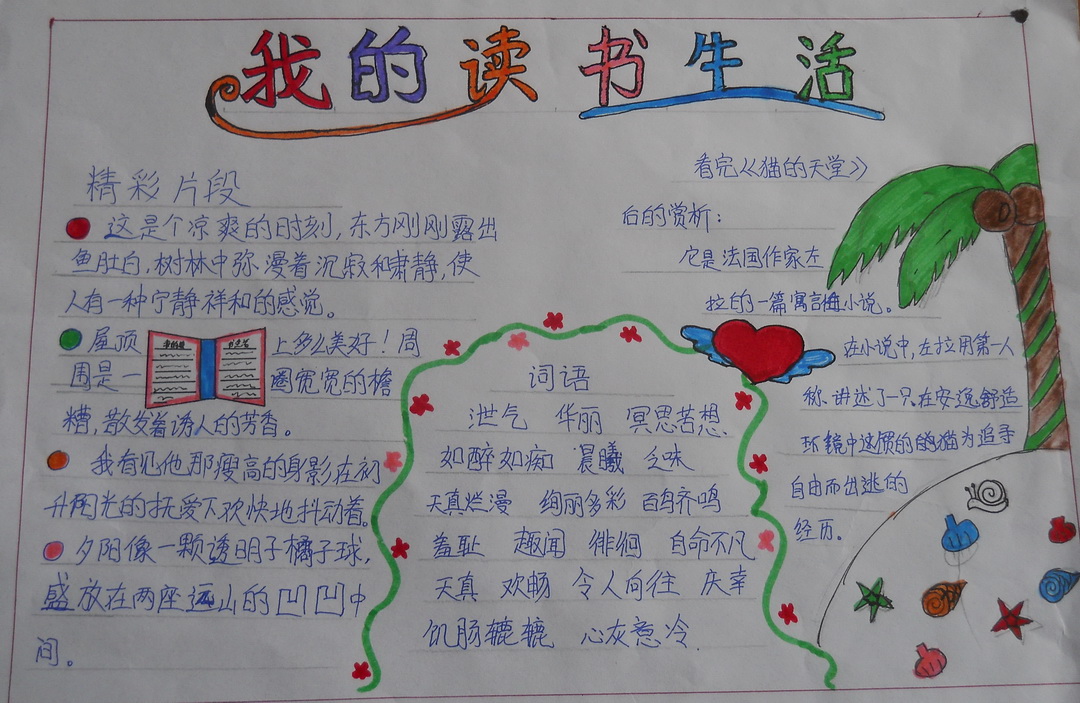 我的读书生活
精彩片段
这是个凉爽的日时刻，东方刚刚露出
鱼肚白，树林中弥漫着沉寂和肃静，使
人有一种宁静祥和的感觉。
屋顶上多么美好！周
围是一圈宽宽的檐
糟，散发着诱人的芳香。
我看见他那瘦高的身影在初
升阳光的抚爱下欢快地抖动着。
夕阳像一颗透明子橘子球，
盛放在两座远山的凹凹中
间。
词语
泄气 华丽 冥思苦想
如醉如痴 晨曦 乏味
天真烂漫 绚丽多彩 百鸟齐鸣
羞耻 趣闻 徘徊 自命不凡
天真 欢畅 令人向往 庆幸
饥肠辘辘 心灰意冷
看完《猫的天堂》
后的赏析：
它是法国作家左
拉的一篇寓言小说。
在小说中，左拉用第一人
称，讲述了一只在安逸舒适
环镜中这惯的猫为追寻
自由而出逃的
经历。